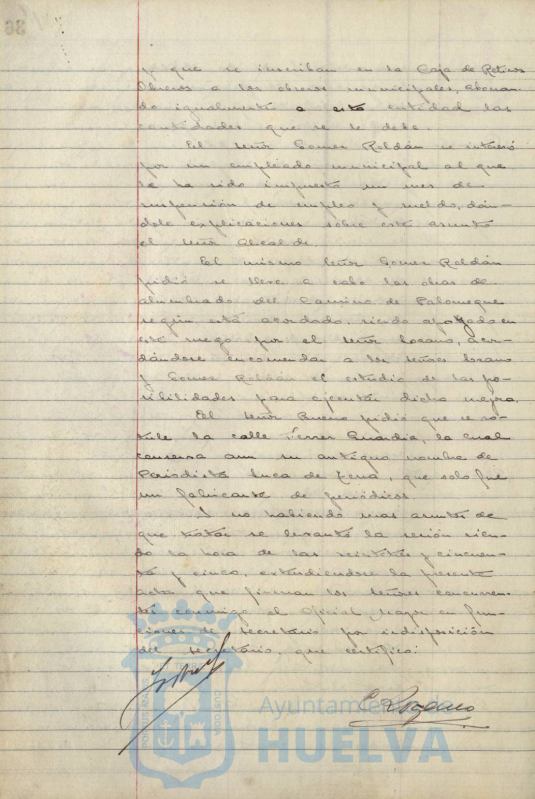 y que se inscriban en la Caja de Retiros
Obreros a los obreros municipales, abonan-
do igualmente a esta entidad las
cantidades que se le debe.
El señor Gomez Roldán se interesó
por un empleado municipal al que
le ha sido impuesto un mes de
suspensión de empleo y sueldo, dán-
dole explicaciones sobre este asunto
el señor Alcalde.
El mismo señor Gomez Roldán
pidió se lleve a cabo las obras de
alumbrado del Camino de Palomeque
según está acordado, siendo apoyado en
este ruego por el señor Lozano, acor-
dándose encomendar a los señores Lozano
y Gomez Roldán el estudio de las po-
sibilidades para ejecutar dicha mejora.
El señor Bueno pidió que se ro-
tule la calle Ferrer Guardia, la cual
conserva aun su antiguo nombre de
Periodista Luca de Tena, que solo fué
un fabricante de periódicos.
Y no habiendo mas asuntos de
que tratar se levantó la sesión sien-
do la hora de las veintitres y cincuen-
ta y cinco, extendiendose la presente
acta que firman los señores concurren-
tes conmigo el Oficial Mayor en fun-
ciones de Secretario por indisposición
del Secretario, que certifico:
Lozano
Ayuntamiento de
HUELVA